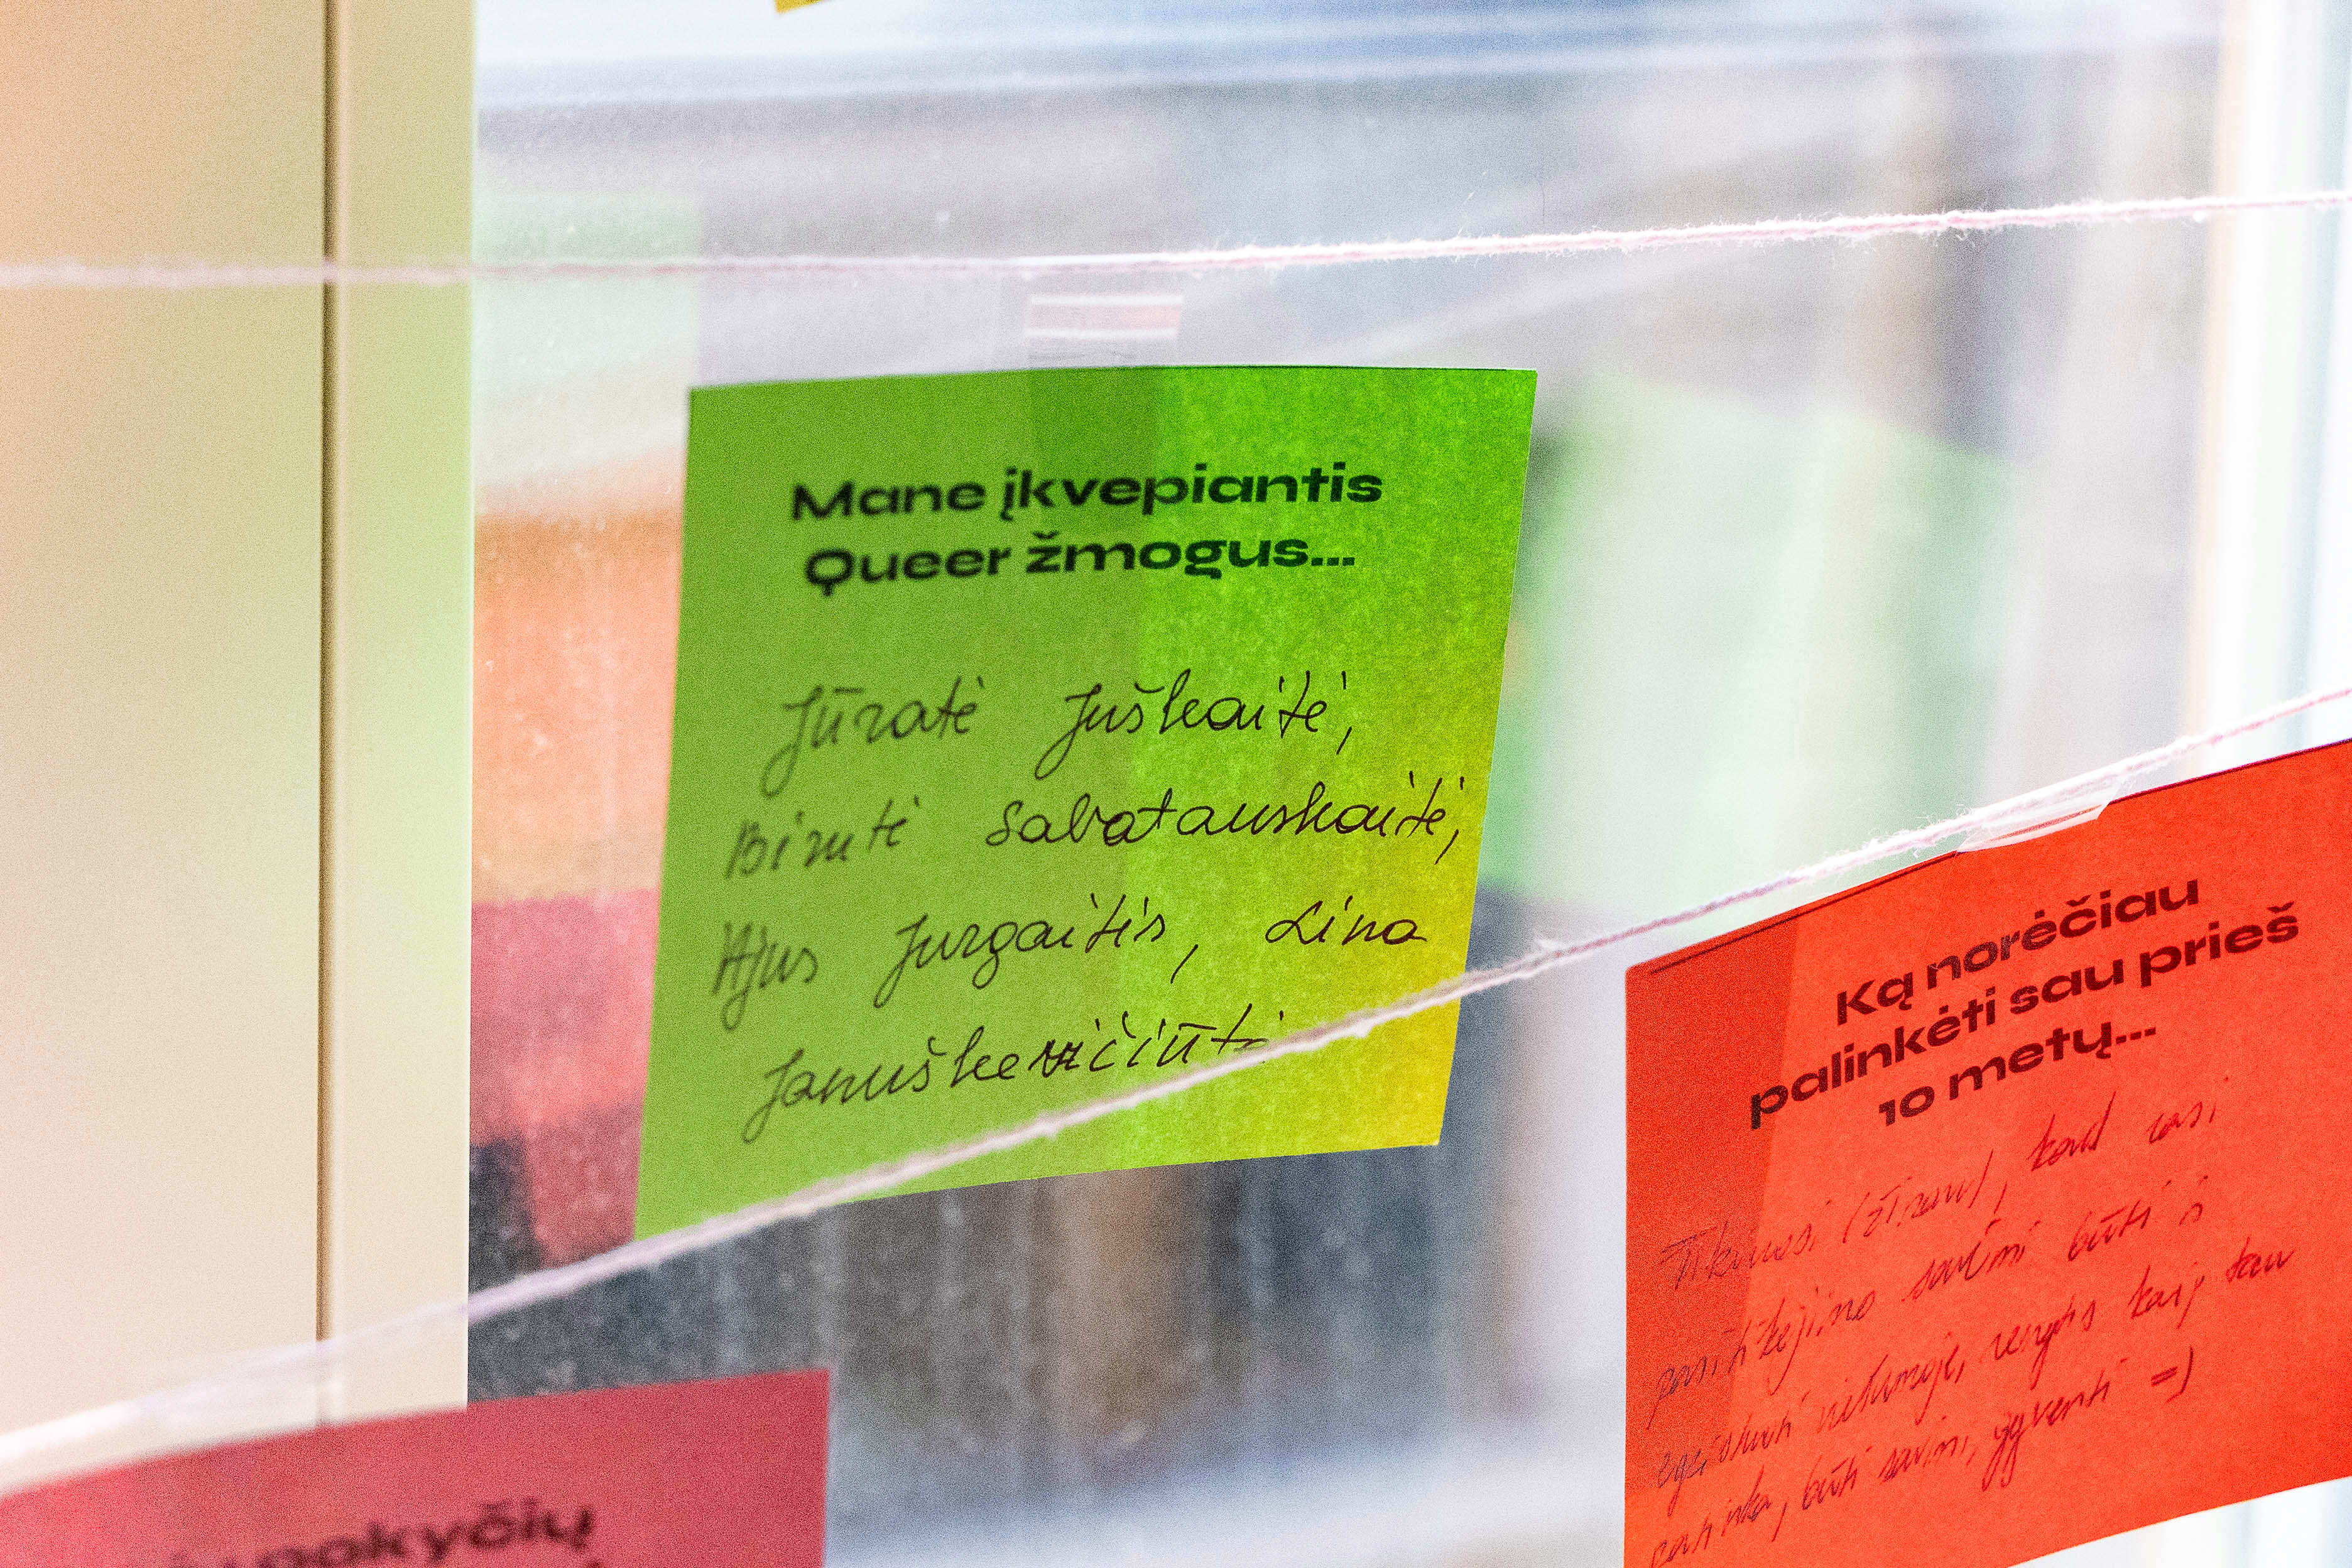 Mane įkvepiantis
Queer žmogus...
Jūratė Juškaitė,
Birutė Sabatauskaitė,
Ajus Jurgaitis, Lina
Januškevičiūtė
Ką norėčiau
palinkėti sau prieš
10 metų...
Tikiuosi (žinau), kad rasi
pasitikėjimo savimi būti ir
egzistuoti viešumoje, rengtis kaip tau
patinka, būti savimi, gyventi =)
pokyčių